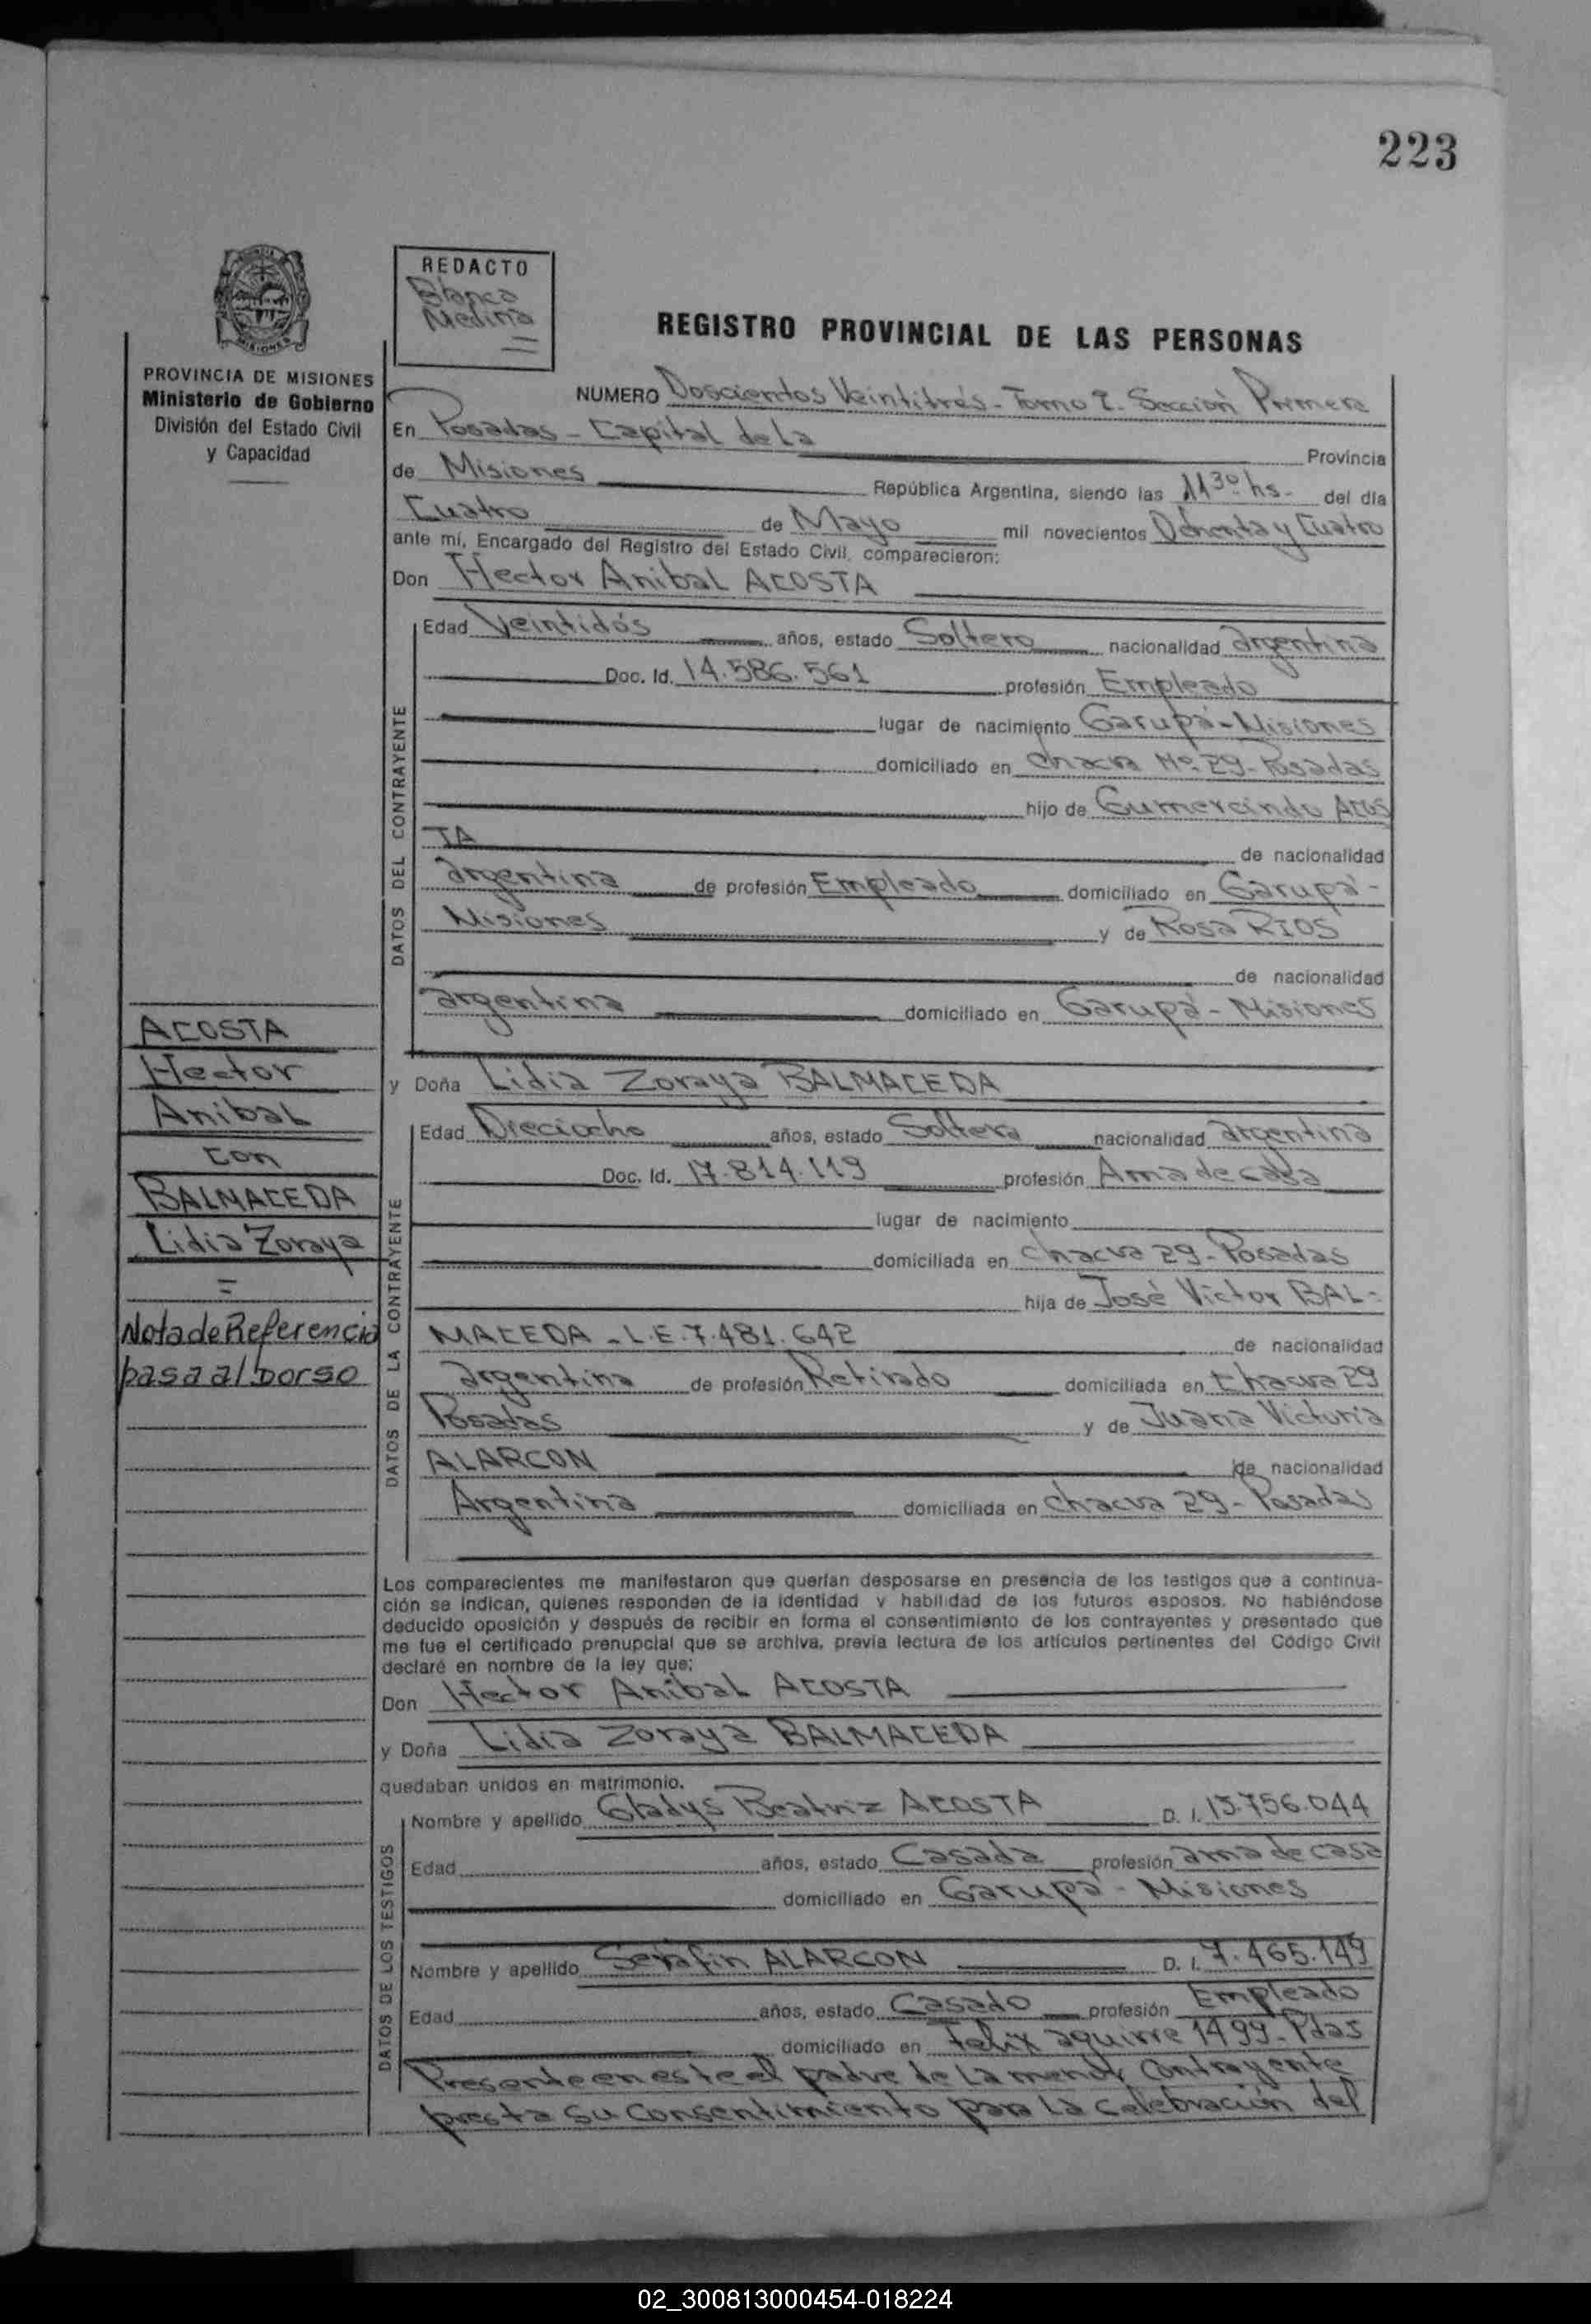 223
REDACTO
Blanca
Medina
REGISTRO PROVINCIAL DE LAS PERSONAS
PROVINCIA DE MISIONES
Ministerio de Gobierno
División del Estado Civil
y Capacidad
NUMERO Doscientos Veintitrés - Tomo 2. Sección Primera
En Posadas - Capital de La Provincia
de Misiones República Argentina, siendo las 11 30 hs - del día
Cuatro de Mayo mil novecientos Ochenta y Cuatro
ante mí, Encargado del Registro del Estado Civil, comparecieron:
Don Hector Anibal ACOSTA
DATOS DEL CONTRAYENTE
Edad Veintidós años, estado Soltero nacionalidad argentina
Doc. Id. 14.586.561 profesión Empleado
lugar de nacimiento Garupá - Misiones
domiciliado en Chacra Nº 29 - Posadas
hijo de Gumercindo ACOS
TA de nacionalidad
argentina de profesión Empleado domiciliado en Garupá -
Misiones y de Rosa RIOS
de nacionalidad
argentina domiciliado en Garupá - Misiones
ACOSTA
Hector
Anibal
con
BALMACEDA
Lidia Zoraya
=
Nota de Referencia
pasa al dorso
y Doña Lidia Zoraya BALMACEDA
DATOS DE LA CONTRAYENTE
Edad Dieciocho años, estado Soltera nacionalidad argentina
Doc. Id. 17.814.119 profesión Ama de casa
lugar de nacimiento
domiciliada en Chacra 29 - Posadas
hija de José Victor BAL-
MACEDA - L.E. 7.481.642 de nacionalidad
argentina de profesión Retirado domiciliada en Chacra 29
Posadas y de Juana Victoria
ALARCON de nacionalidad
Argentina domiciliada en Chacra 29 - Posadas
Los comparecientes me manifestaron que querían desposarse en presencia de los testigos que a continua-
ción se indican, quienes responden de la identidad y habilidad de los futuros esposos. No habiéndose
deducido oposición y después de recibir en forma el consentimiento de los contrayentes y presentado que
me fue el certificado prenupcial que se archiva, previa lectura de los artículos pertinentes del Código Civil
declaré en nombre de la ley que:
Don Hector Anibal ACOSTA
y Doña Lidia Zoraya BALMACEDA
quedaban unidos en matrimonio.
DATOS DE LOS TESTIGOS
Nombre y apellido Gladys Beatriz ACOSTA D. I. 13.756.044
Edad años, estado Casada profesión ama de casa
domiciliado en Garupá - Misiones
Nombre y apellido Serafin ALARCON D. I. 7.465.149
Edad años, estado Casado profesión Empleado
domiciliado en Felix aguirre 1499 - Pdas
Presente en este el padre de la menor contrayente
presta su consentimiento para la celebración del
02_300813000454-018224